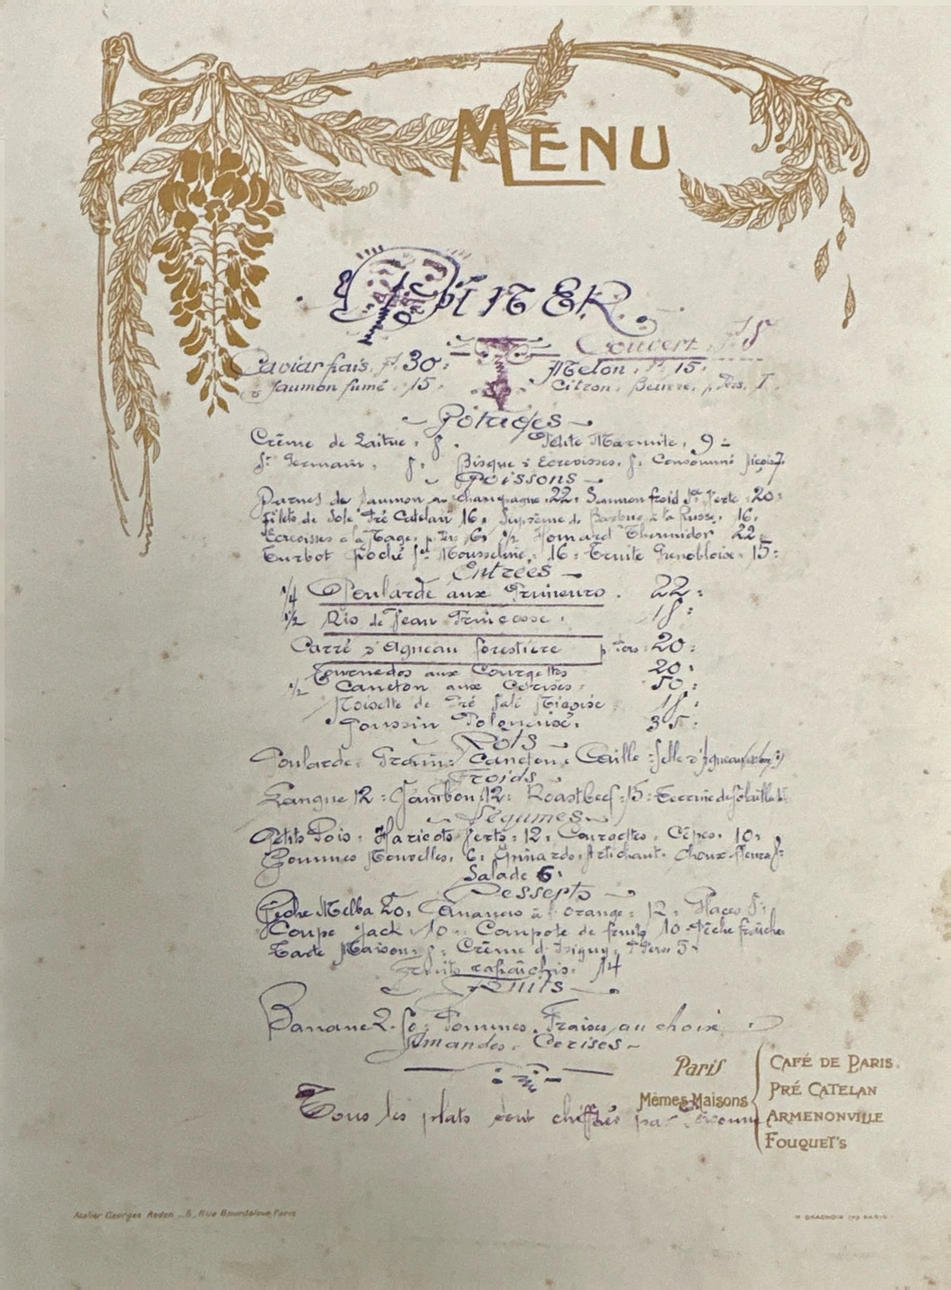 MENU
DÎNER
Couvert, F. 5
Caviar frais, F. 30. Melon, F. 15.
Saumon fumé. 15. Citron, Beurre, p. Pers. 1.
Potages
Crème de Laitue, 8. Petite Marmite, 9
St Germain, 8. Bisque d'Ecrevisses, 8, Consommé
Poissons
Darnes de Saumon au champagne 22. Saumon froid Sce Verte 20
Filets de Sole Pré Catelan 16. Suprême de Barbue à la Russe, 16.
Ecrevisses à la Nage, p. Pers 6. 1/2 Homard Thermidor 22
Turbot Poché Sce Mousseline, 16. Truite Grenobloise. 15
Entrées
1/4 Poularde aux Primeurs. 22
1/2 Ris de Veau Princesse. 18
Carré d'Agneau forestière p. Pers. 20
Tournedos aux Courgettes 20
1/2 Caneton aux Cerises. 50
Noisette de Pré Salé Niçoise 18
Poussin Polonaise. 35
Rôts
Poularde. Grain. Caneton. Caille. Selle d'Agneau
Froids
Langue 12. Jambon 12. Roastbeef. 15. Terrine de Volaille
Légumes
Petits Pois. Haricots Verts. 12. Courgettes. Cèpes. 10.
Pommes Nouvelles. 6. Epinards. Artichaut. Choux-fleurs
Salade 6.
Desserts
Pêche Melba 20. Ananas à l'orange. 12. Glaces
Coupe Jack 10. Compote de fruits 10. Pêche fraîche
Tarte Maison. 8. Crème d'Isigny, p. Pers 5
Fruits rafraîchis. 14
Fruits
Banane 2.50. Pommes. Fraises, au choix
Amandes. Cerises
Tous les plats sont chiffrés par Personne
Paris
Mêmes Maisons
CAFÉ DE PARIS.
PRÉ CATELAN
ARMENONVILLE
FOUQUET'S
Atelier Georges Redon _ 8, Rue Bourdaloue, Paris